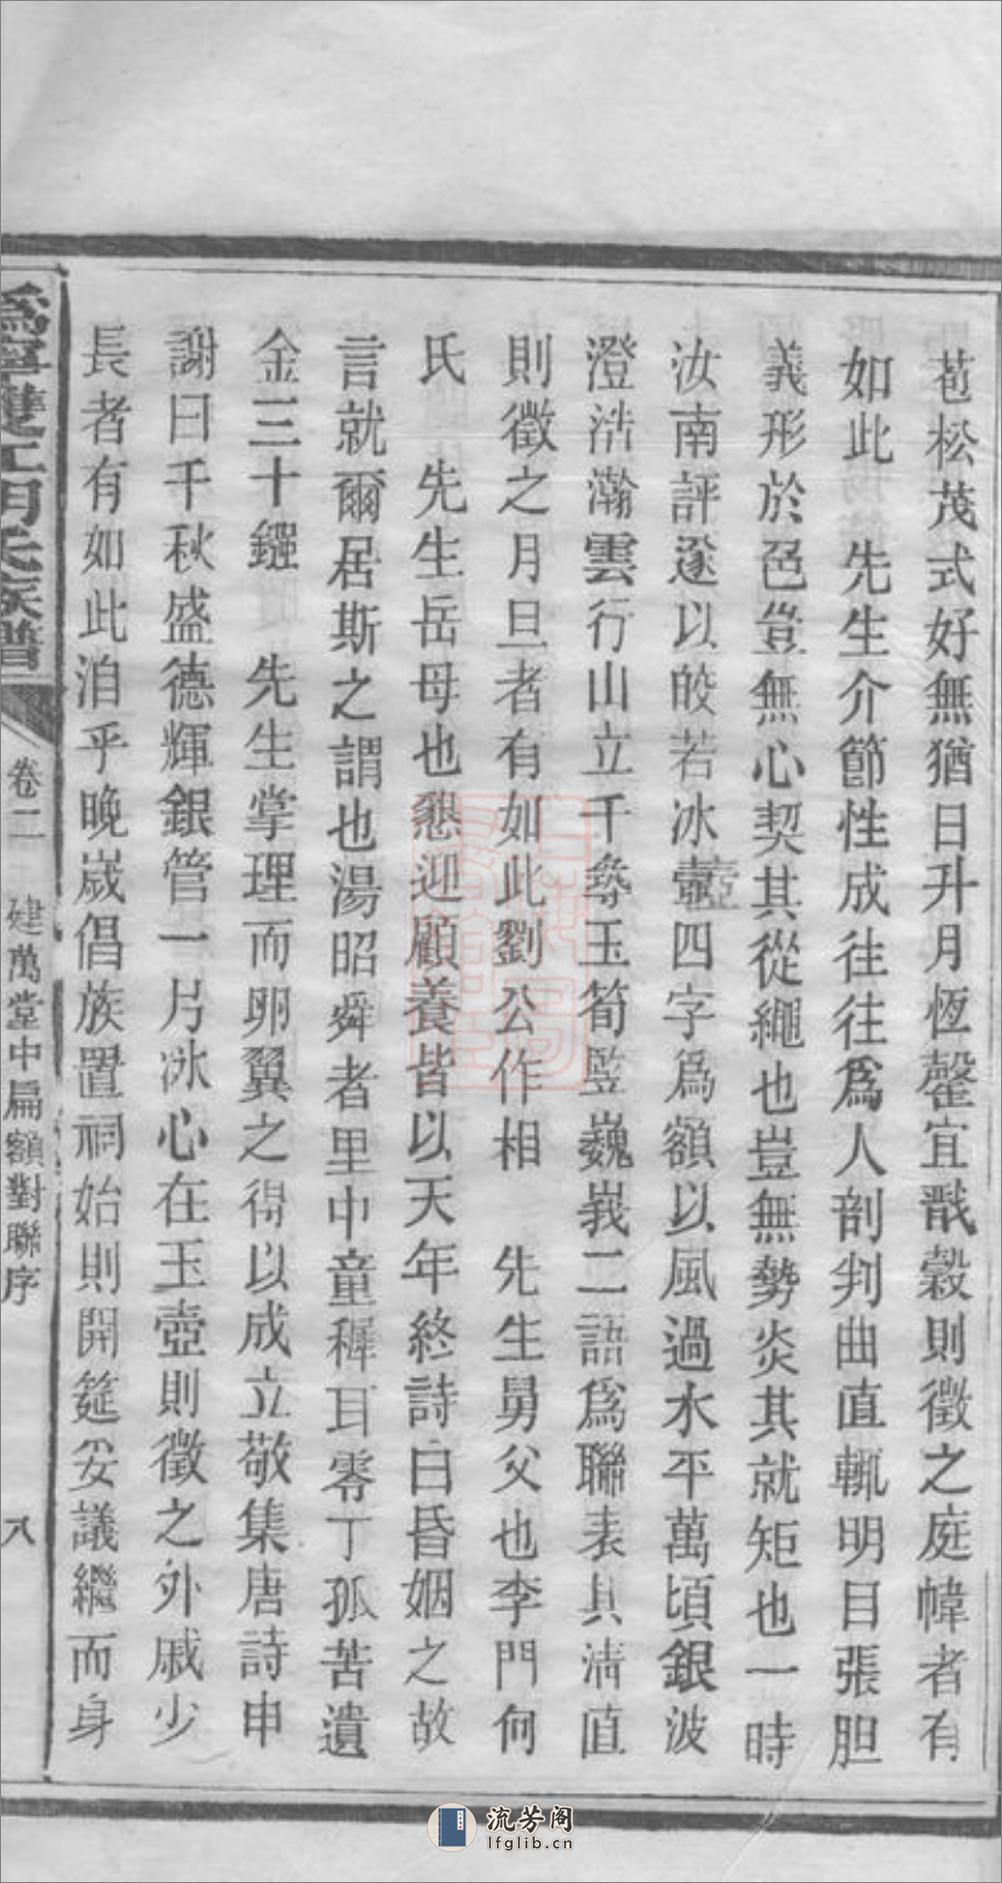 苞松茂式好無猶日升月恆罄宜戩穀則徵之庭幃者有
如此　先生介節性成往往爲人剖判曲直輒明目張胆
義形於色豈無心契其從繩也豈無勢炎其就矩也一時
汝南評遂以皎若冰壺四字爲額以風過水平萬頃銀波
澄浩瀚雲行山立千尋玉筍豎巍峩二語爲聯表其清直
則徵之月旦者有如此劉公作相　先生舅父也李門何
氏　先生岳母也懇迎顧養皆以天年終詩曰昏姻之故
言就爾居斯之謂也湯昭舜者里中童穉耳零丁孤苦遺
金三十鐶　先生掌理而卵翼之得以成立敬集唐詩申
謝曰千秋盛德輝銀管一片冰心在玉壺則徵之外戚少
長者有如此洎乎晚嵗倡族置祠始則開筵妥議繼而身
爲寧雙江周氏族譜
卷二
建萬堂中扁額對聯序
八
流芳阁
lfglib.cn